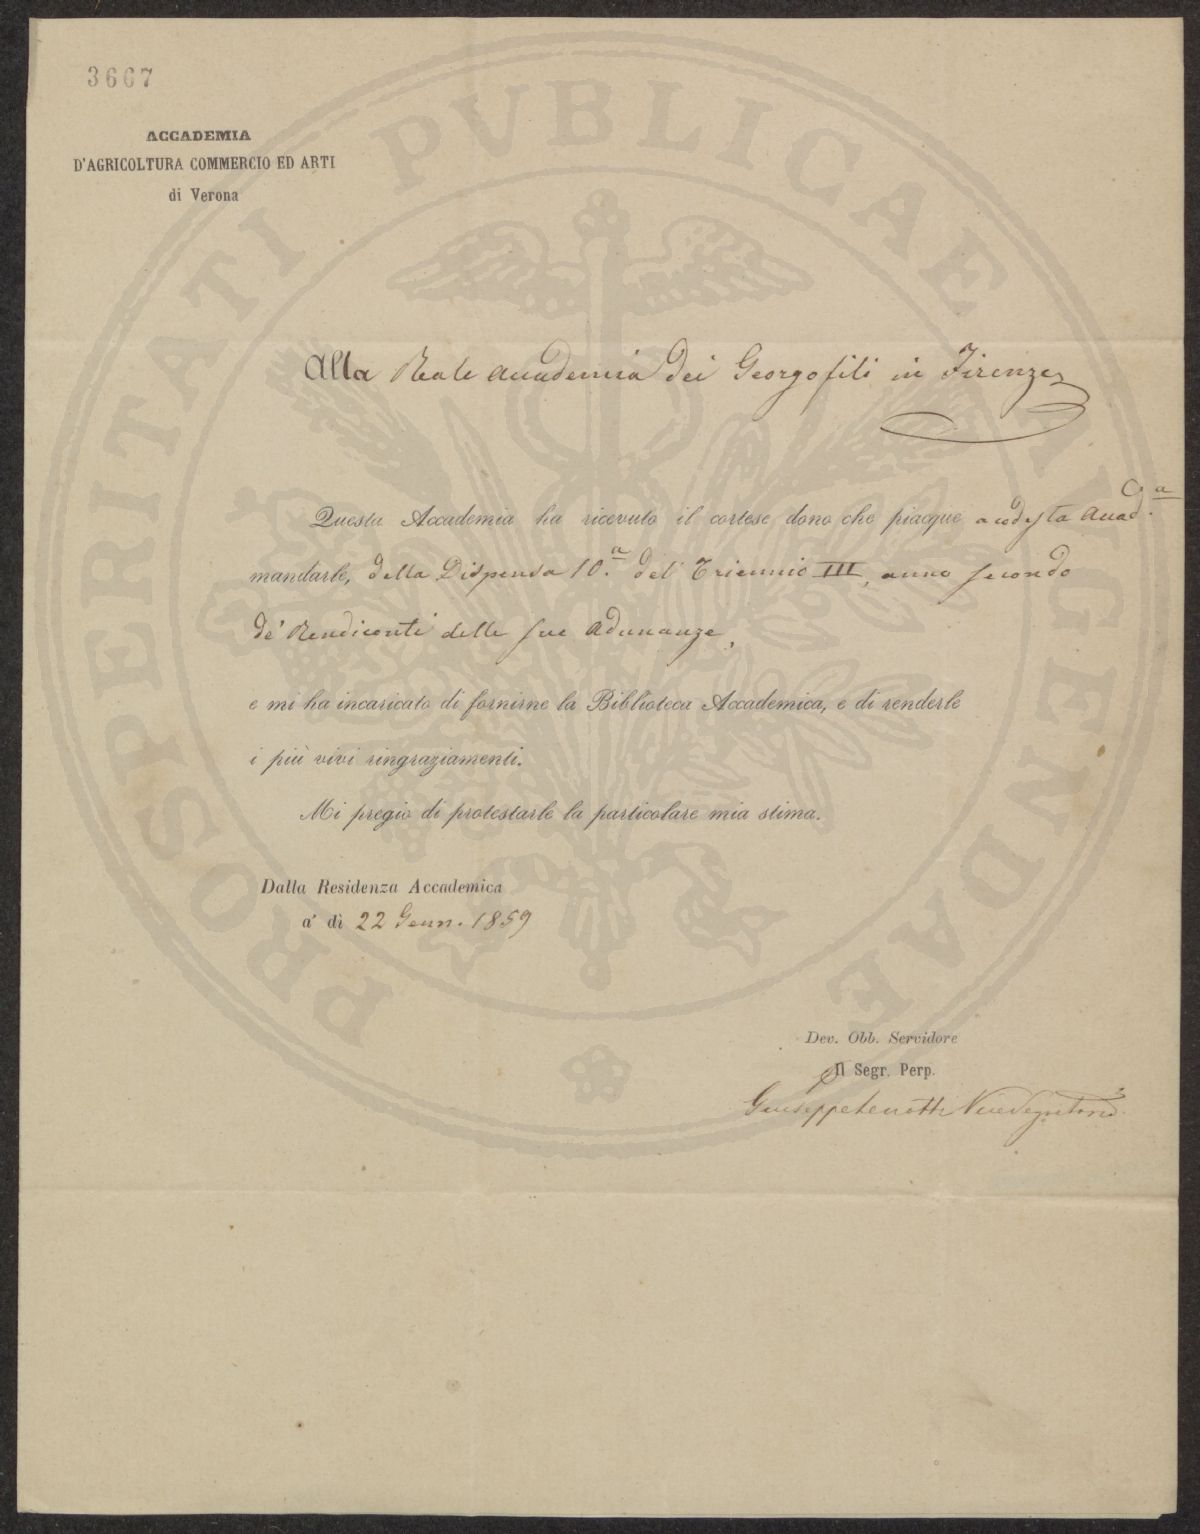 3667
ACCADEMIA
D'AGRICOLTURA COMMERCIO ED ARTI
di Verona
PROSPERITATI PVBLICAE AVGENDAE
Alla Reale Accademia dei Georgofili in Firenze
Questa Accademia ha ricevuto il cortese dono che piacque a codesta Accad.a
mandarle, della Dispensa 10.a del Triennio III, anno secondo
de' Rendiconti delle sue Adunanze,
e mi ha incaricato di fornirne la Biblioteca Accademica, e di renderle
i più vivi ringraziamenti.
Mi pregio di protestarle la particolare mia stima.
Dalla Residenza Accademica
a' dì 22 Genn. 1859
Dev. Obb. Servidore
Il Segr. Perp.
Giuseppe